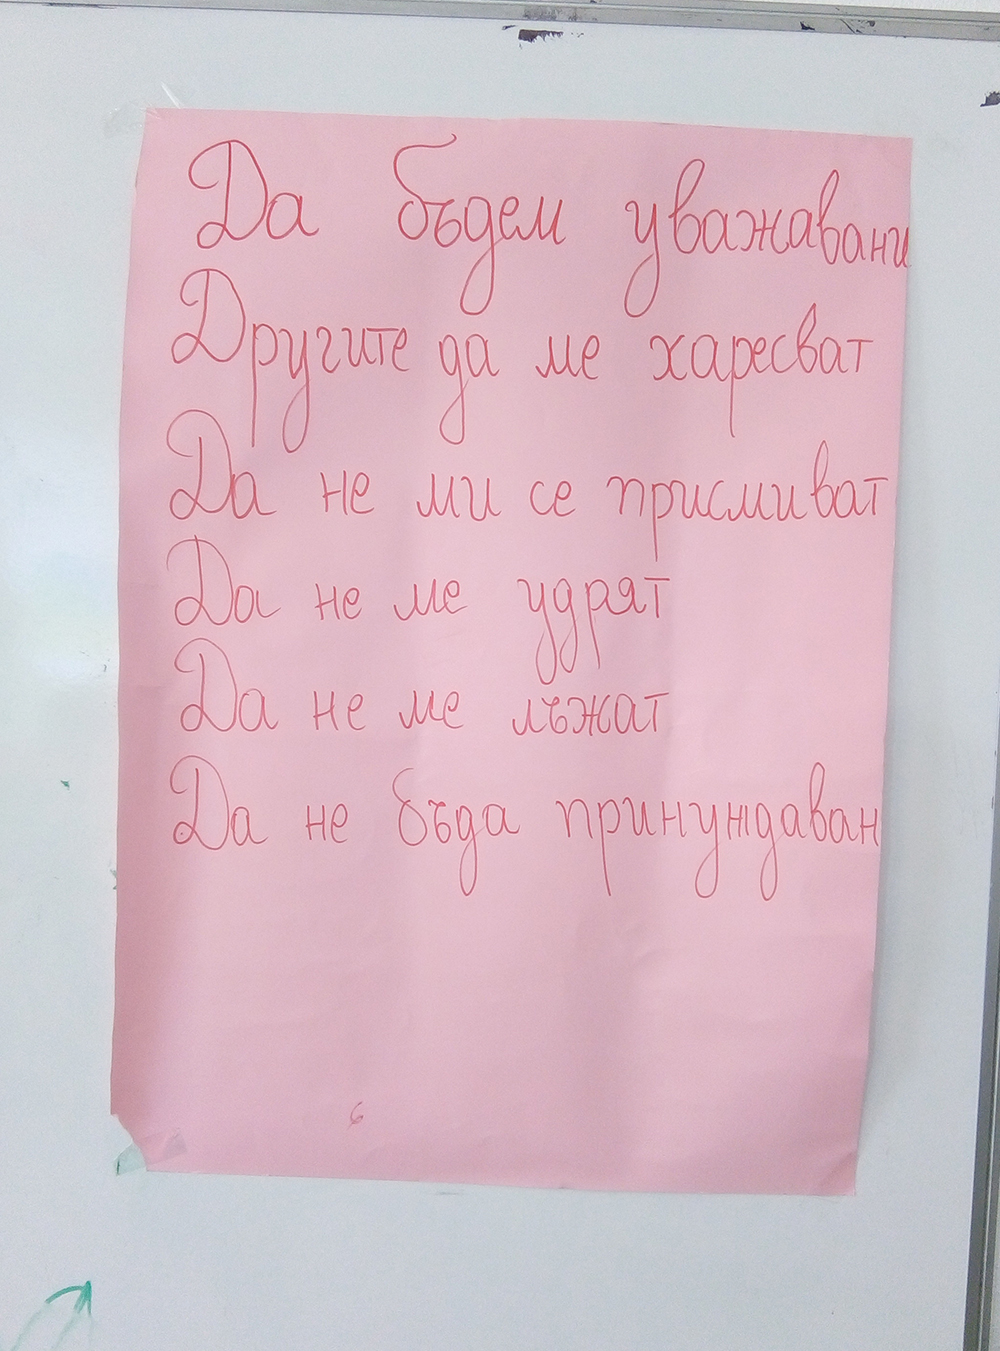 Да бъдем уважавани
Другите да ме харесват
Да не ми се присмиват
Да не ме удрят
Да не ме лъжат
Да не бъда принуждаван
6